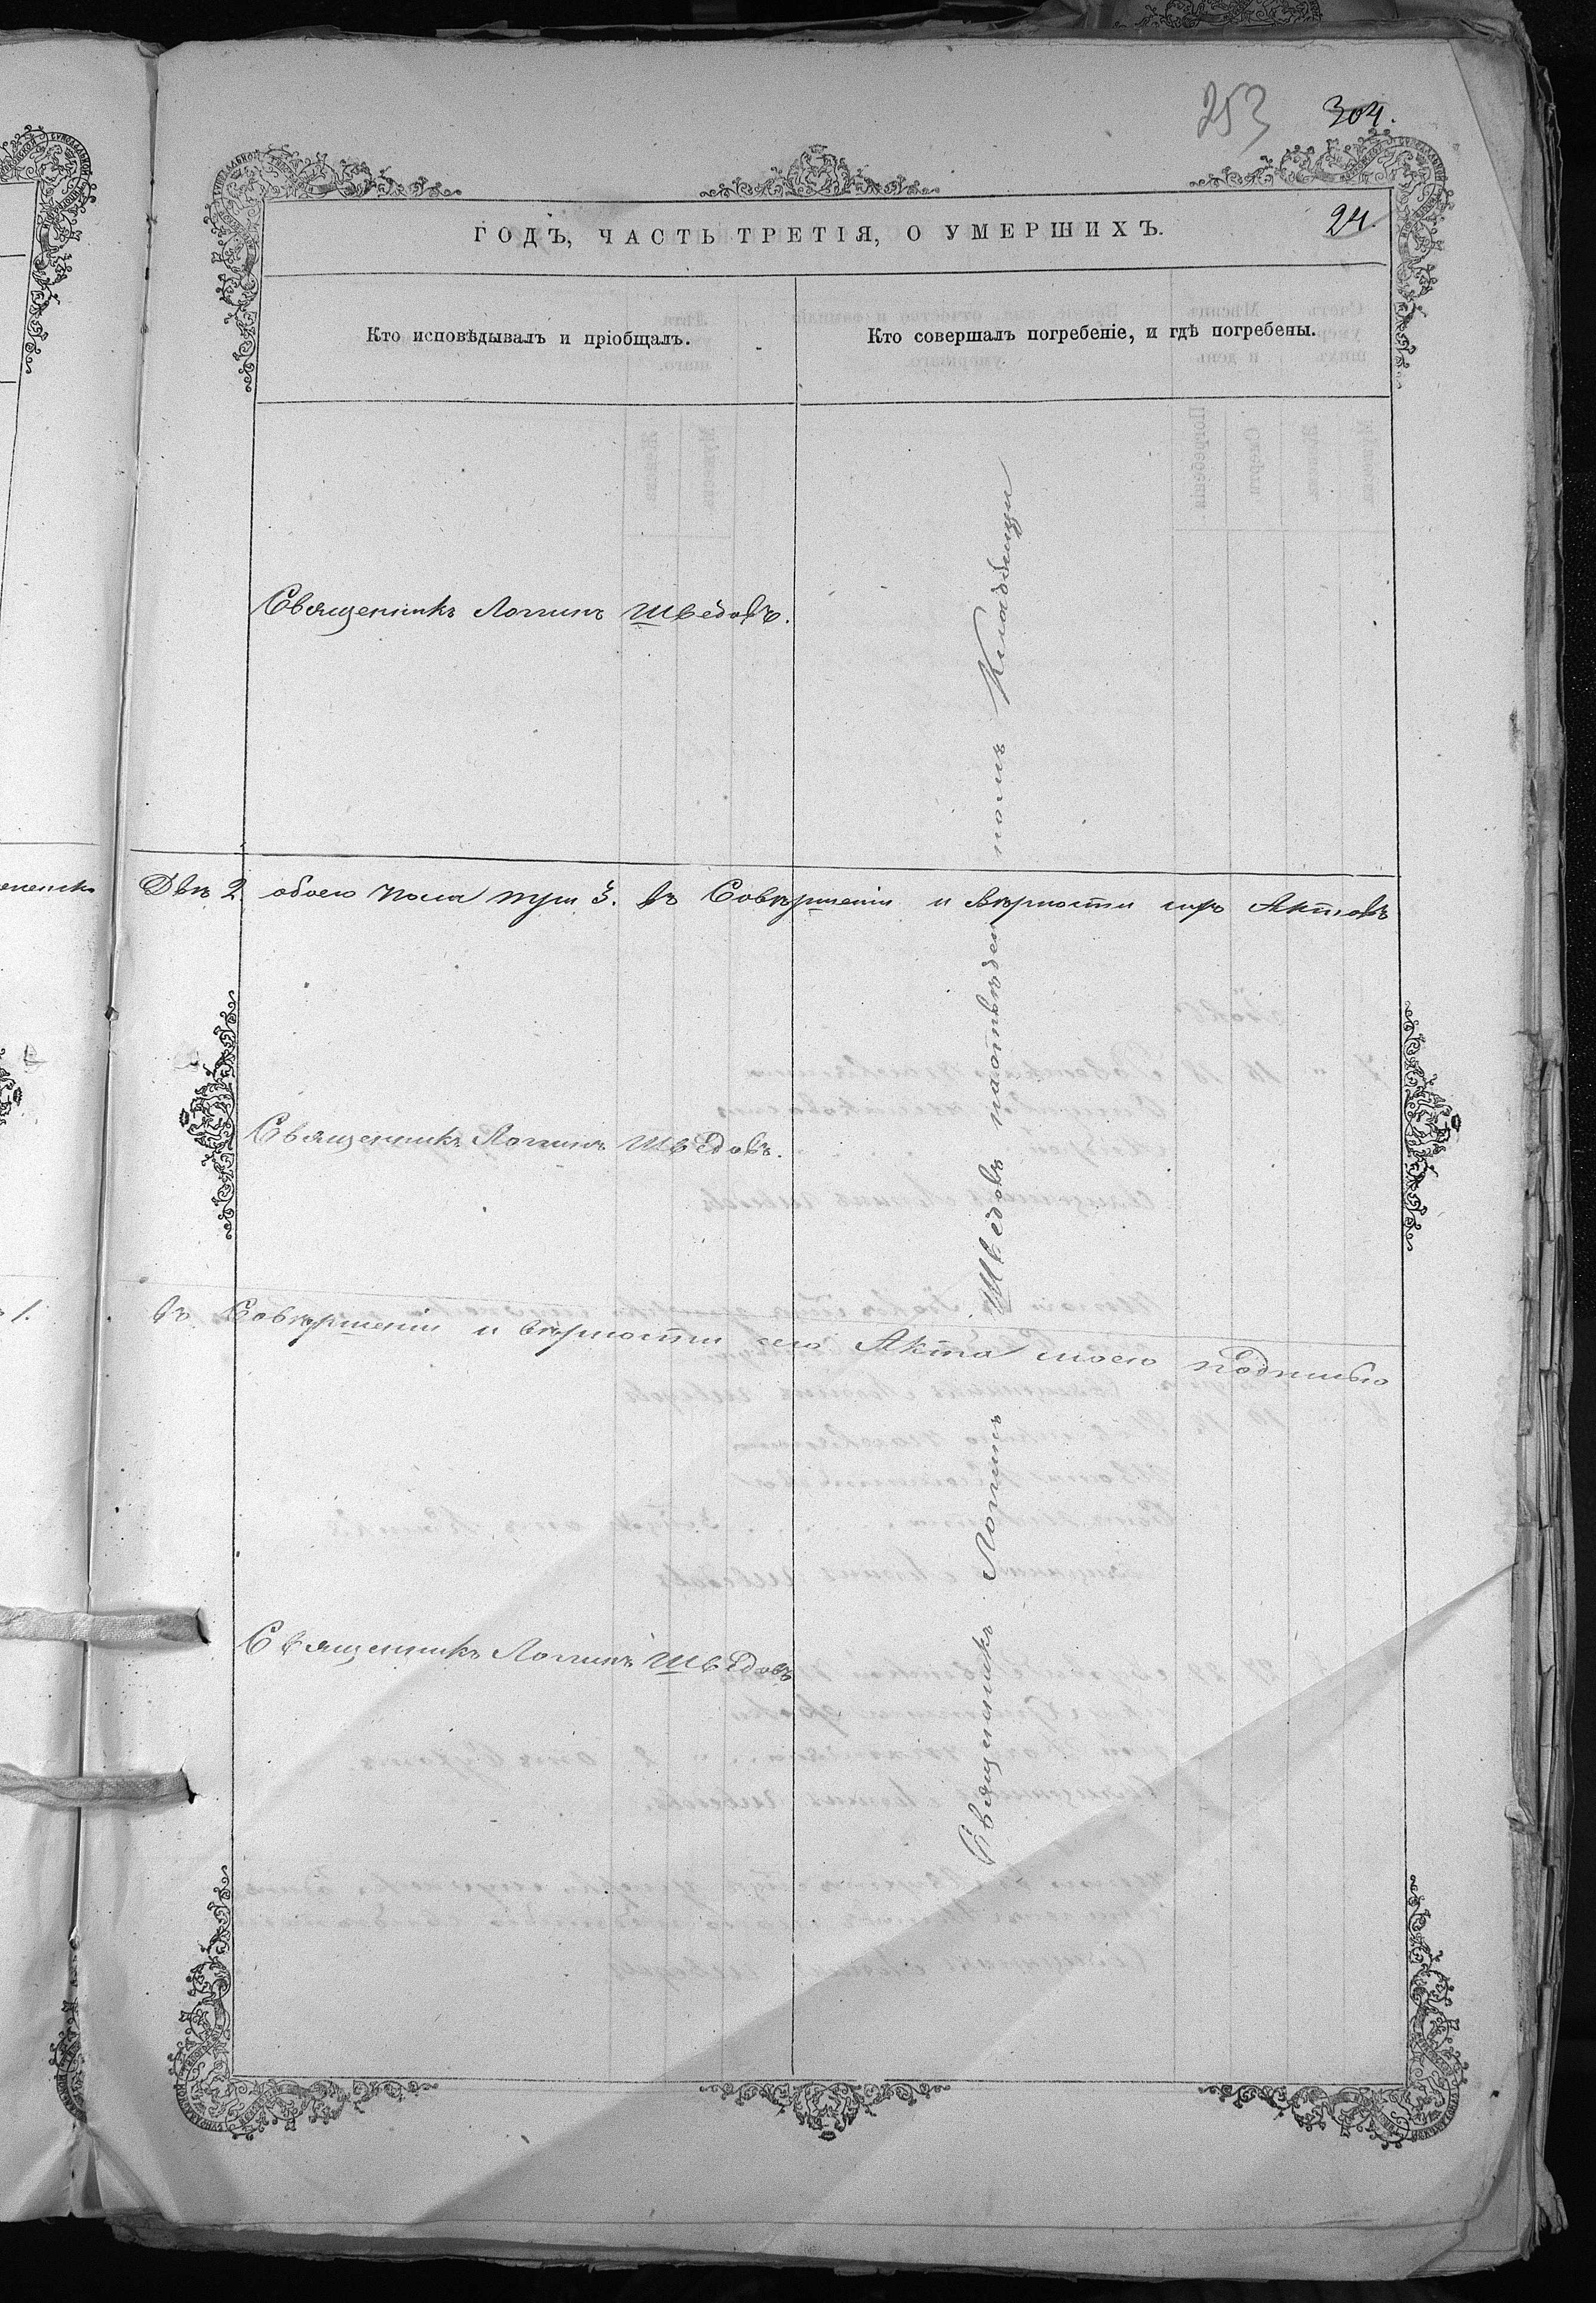 253
304.
ГОДЪ, ЧАСТЬ ТРЕТІЯ, О УМЕРШИХЪ.
24.
Кто исповѣдывалъ и пріобщалъ.
Кто совершалъ погребеніе, и гдѣ погребены.
Священникъ Логинъ Шведовъ.
Двѣ 2 обоего пола три 3. въ Совершеніи и вѣрности сихъ Актовъ
Священникъ Логинъ Шведовъ.
1. въ Совершеніи и вѣрности сего Акта моею подписью
Священникъ Логинъ Шведовъ
Священникъ Логинъ Шведовъ на отведенномъ Кладбищи